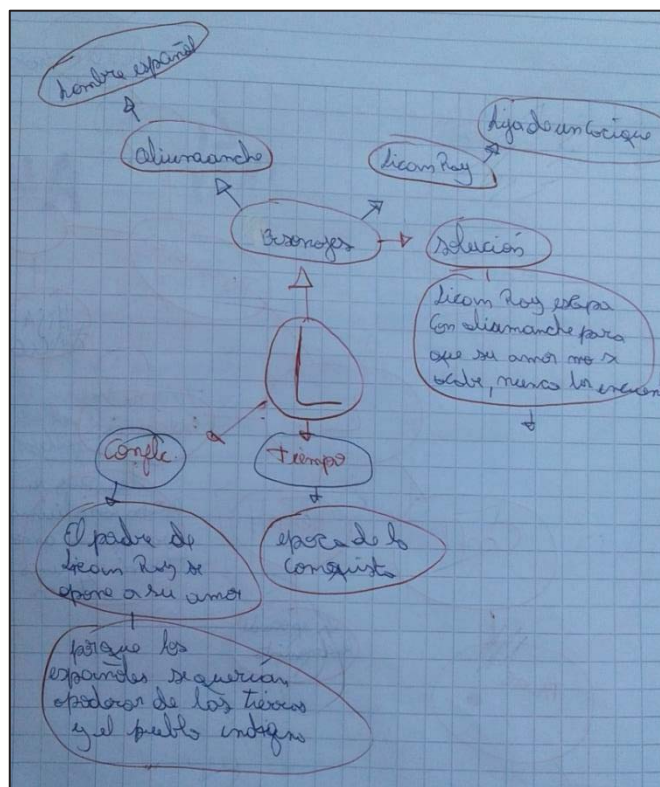 hombre español
aliumanche
Licam Ray
hija de un Cacique
Personajes
solución
Licam Ray escapa
Con aliamanche para
que su amor no se
acabe, nunca los encuen
L
Conflic.
tiempo
El padre de
Licam Ray se
opone a su amor
época de la
Conquista
porque los
españoles se querían
apoderar de las tierras
y el pueblo indígno